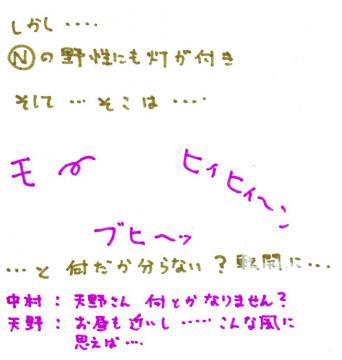 しかし‥‥
Ⓝの野性にも灯が付き
そして…そこは‥‥
モ〜
ヒィヒィ〜ン
ブヒ〜ッ
…と何だか分らない?転開に…
中村:天野さん 何とかなりません?
天野:お昼も近いし……こんな風に
思えば…